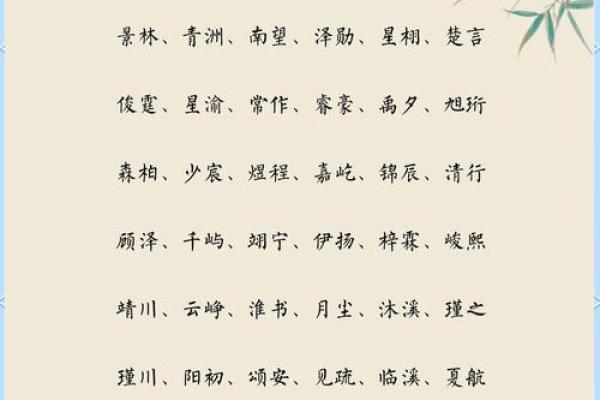 景林、青洲、南望、泽勋、星栩、楚言
俊霆、星渝、常作、睿豪、禹夕、旭珩
森柏、少宸、煜程、嘉屹、锦辰、清行
顾泽、千屿、翊宁、伊扬、梓霖、峻熙
靖川、云峥、淮书、月尘、沐溪、瑾之
瑾川、阳初、颂安、见疏、临溪、夏航